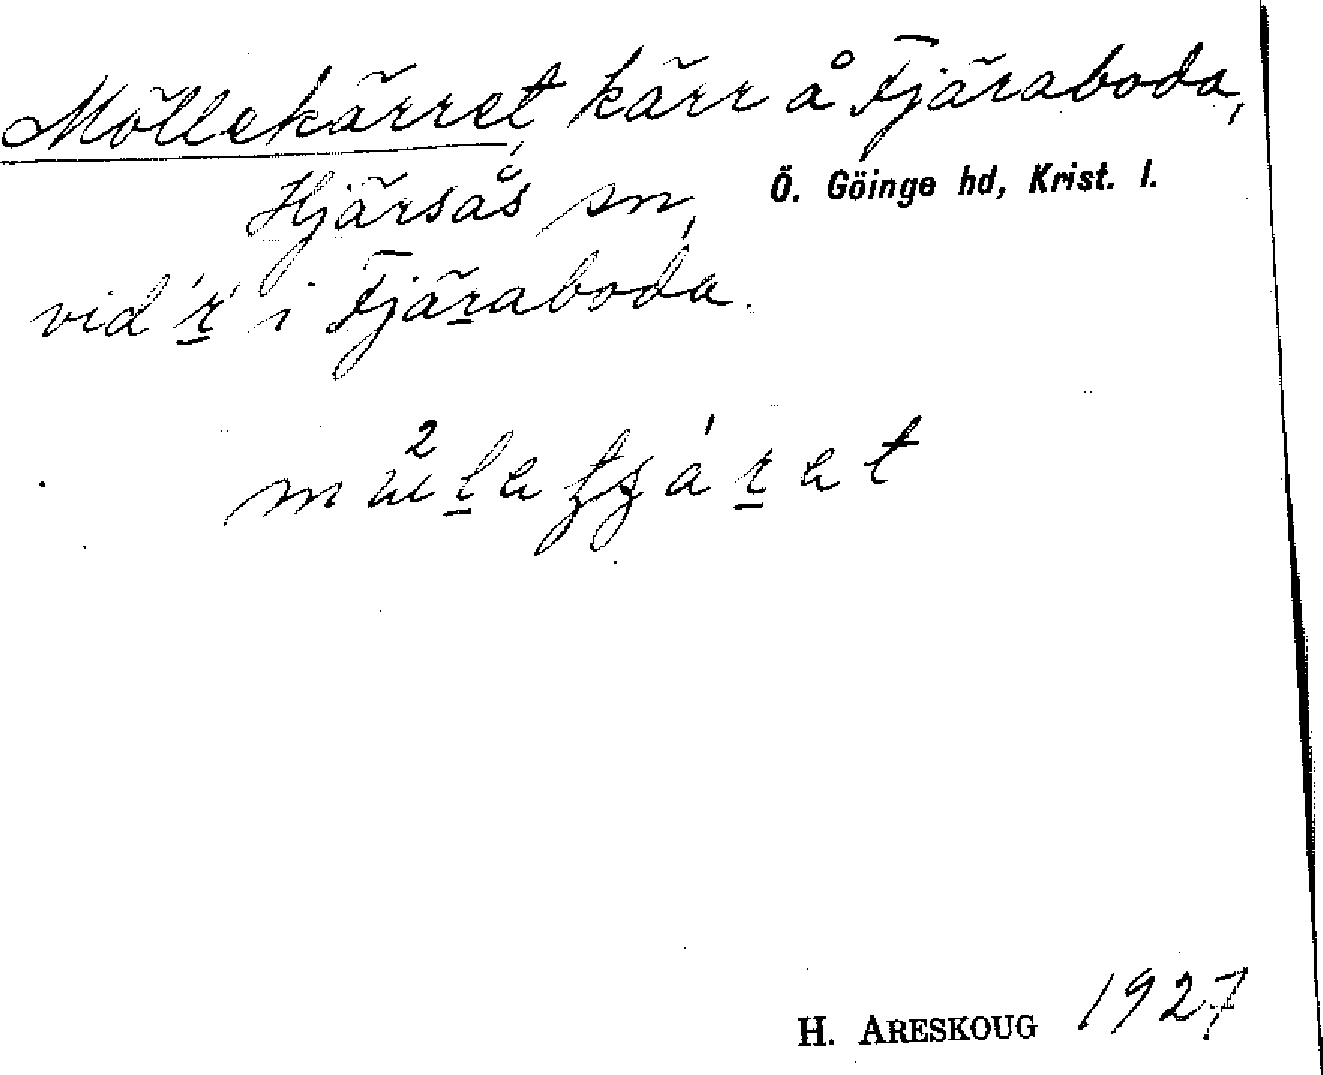 Möllekärret, kärr å Fjäraboda,
Hjärsås sn, Ö. Göinge hd, Krist. l.
vid 'r' i Fjäraboda.
H. ARESKOUG 1927